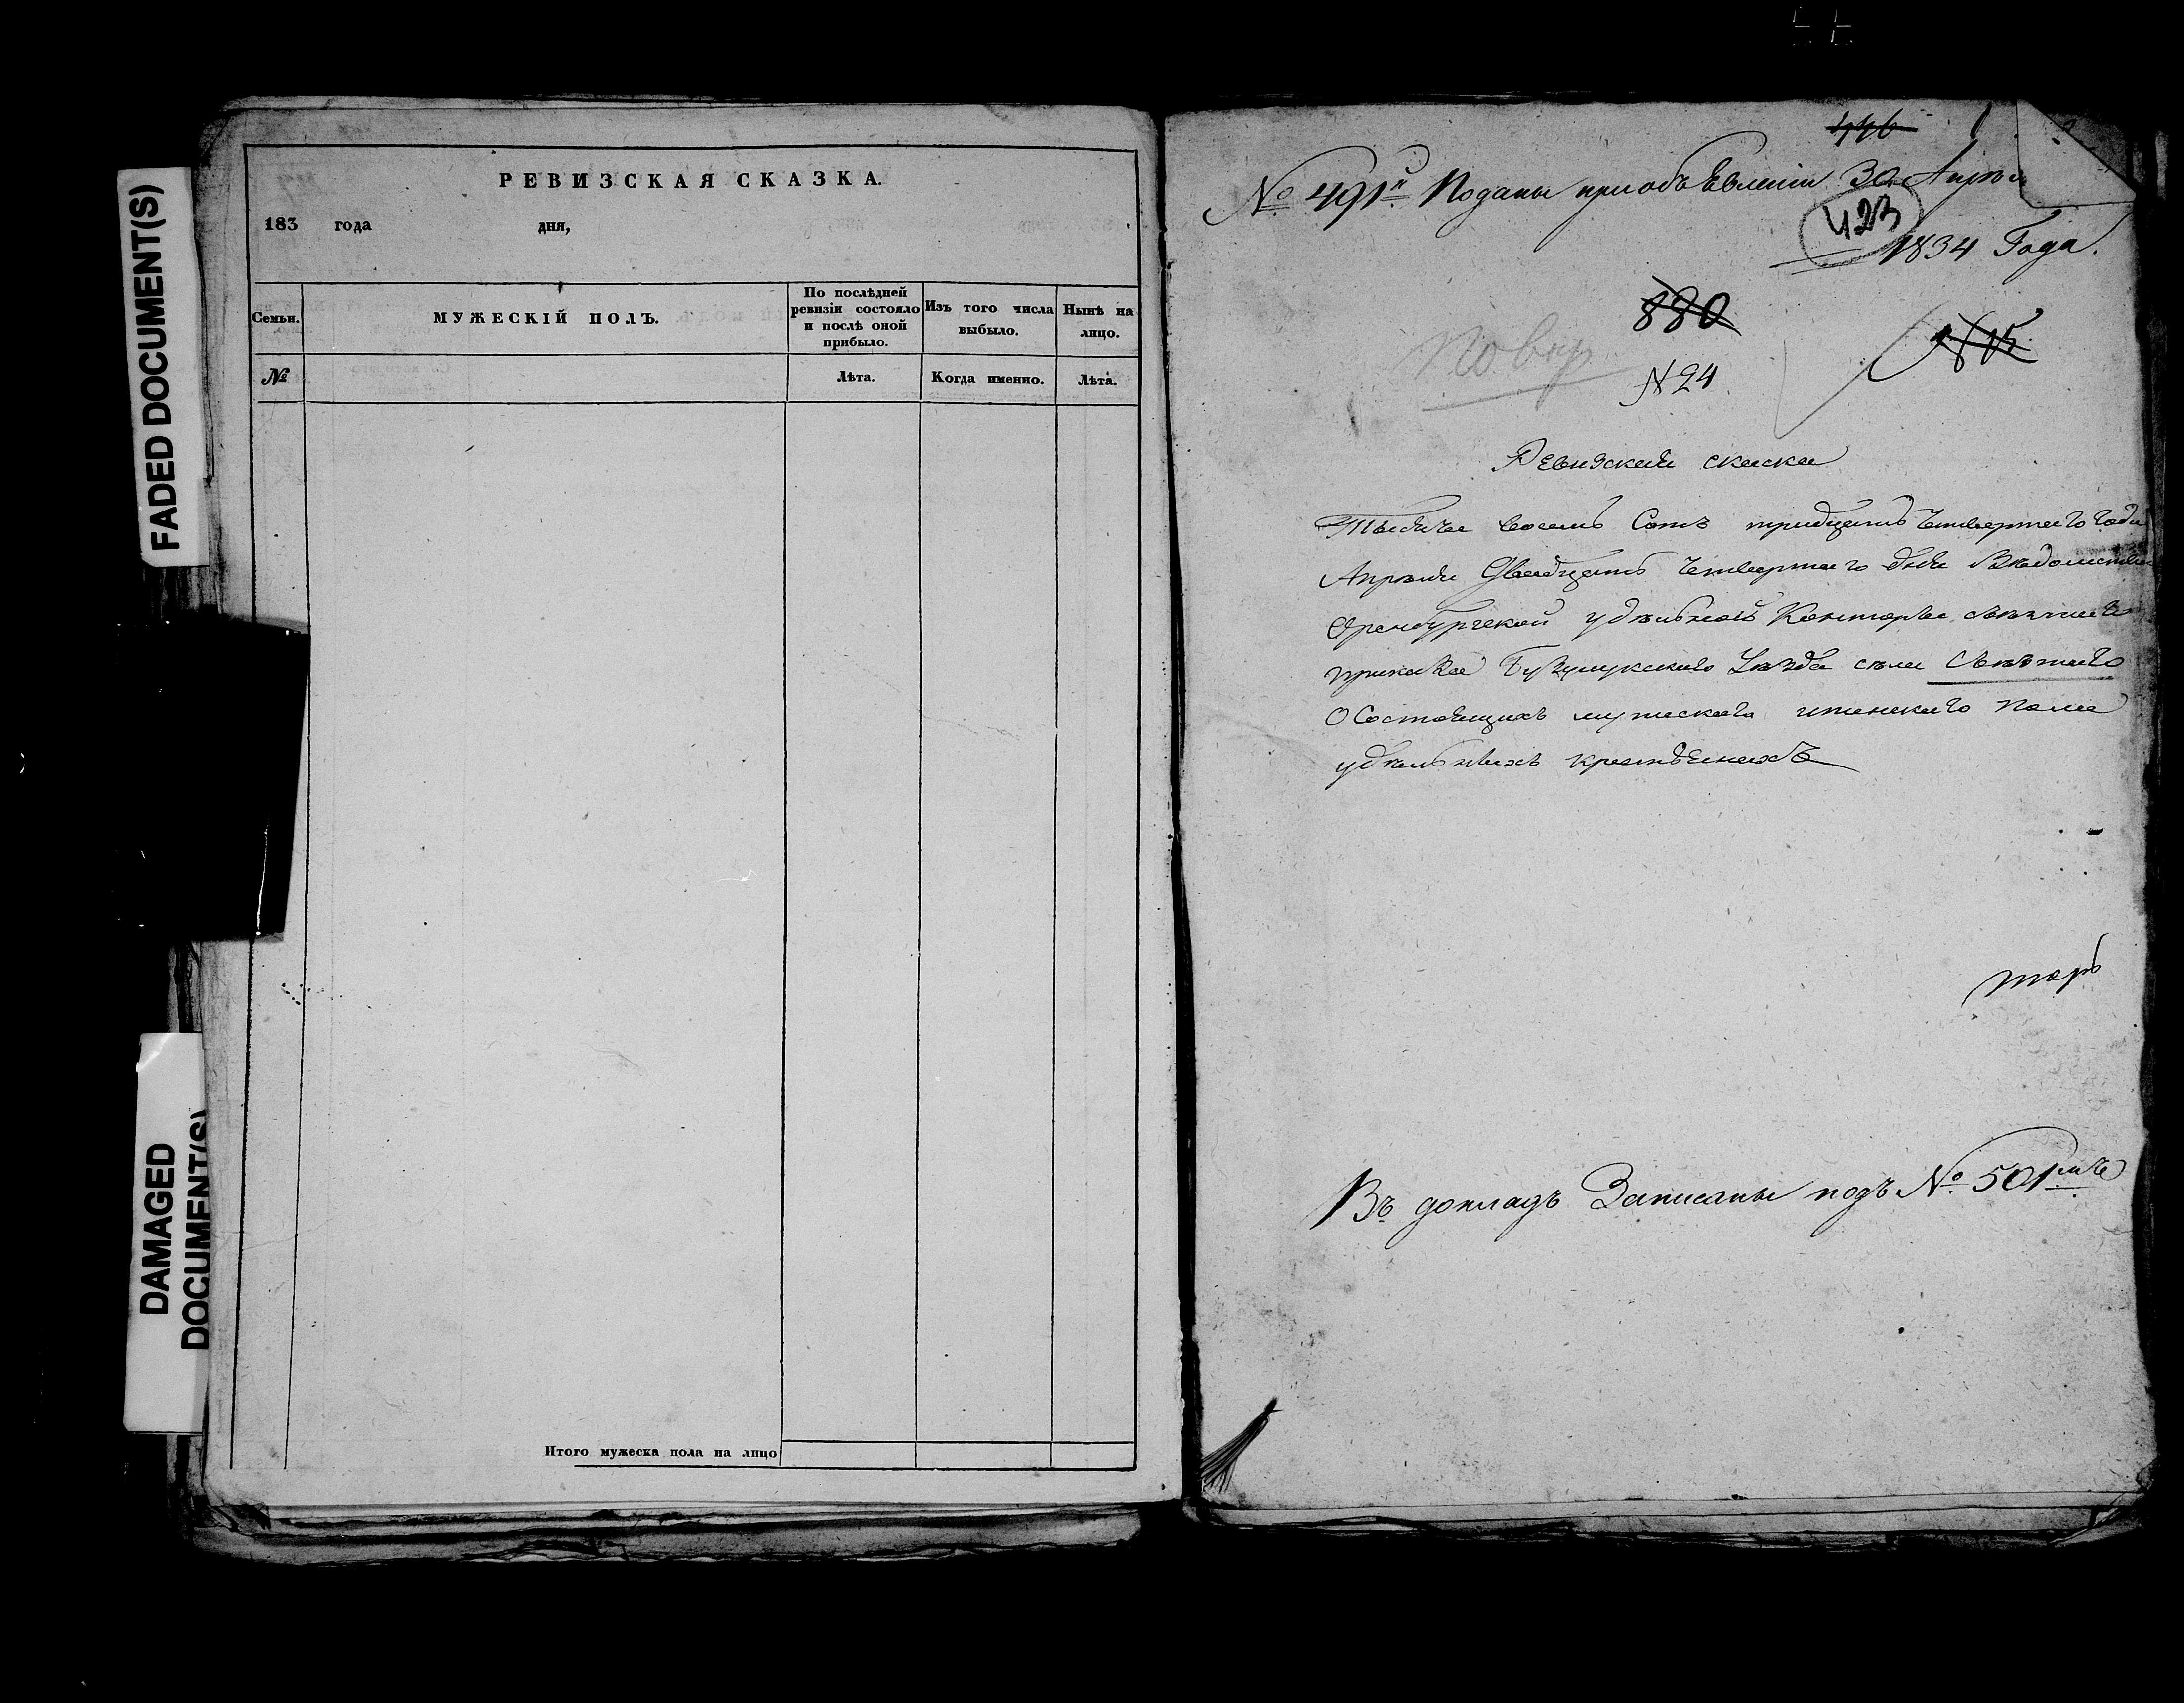 FADED DOCUMENT(S)
DAMAGED
DOCUMENT(S)
РЕВИЗСКАЯ СКАЗКА.
183 года дня,
Семьи.
МУЖЕСКІЙ ПОЛЪ.
По послѣдней
ревизіи состояло
и послѣ оной
прибыло.
Изъ того числа
выбыло.
Нынѣ на
лицо.
№
Лѣта.
Когда именно.
Лѣта.
Итого мужеска пола на лицо
446
№ 491й Поданы при объевленіи 30 Апрѣл
423
1834 Года.
880
№ 24
Ревизская скаска
Тысяча восемь Сотъ тридцать Четвертаго года
Апрѣля Двадцать Четвертаго дня Вѣдомства
Оренбургской удѣльной Конторы съѣзжаго
приказа Бузулукскаго Уѣзда села Съѣзжаго
О Состоящихъ мужескаго иженскаго пола
удѣльныхъ крестьянахъ
торъ
Въ докладъ Записаны подъ № 501мъ